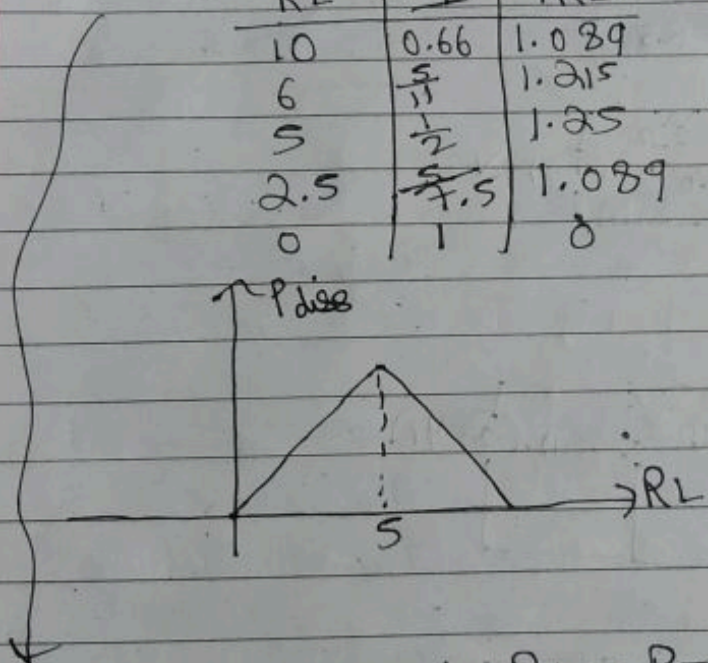 10 0.66 1.089
6 5/11 1.215
5 1/2 1.25
2.5 5/7.5 1.089
0 1 0
Pdiss
RL
5